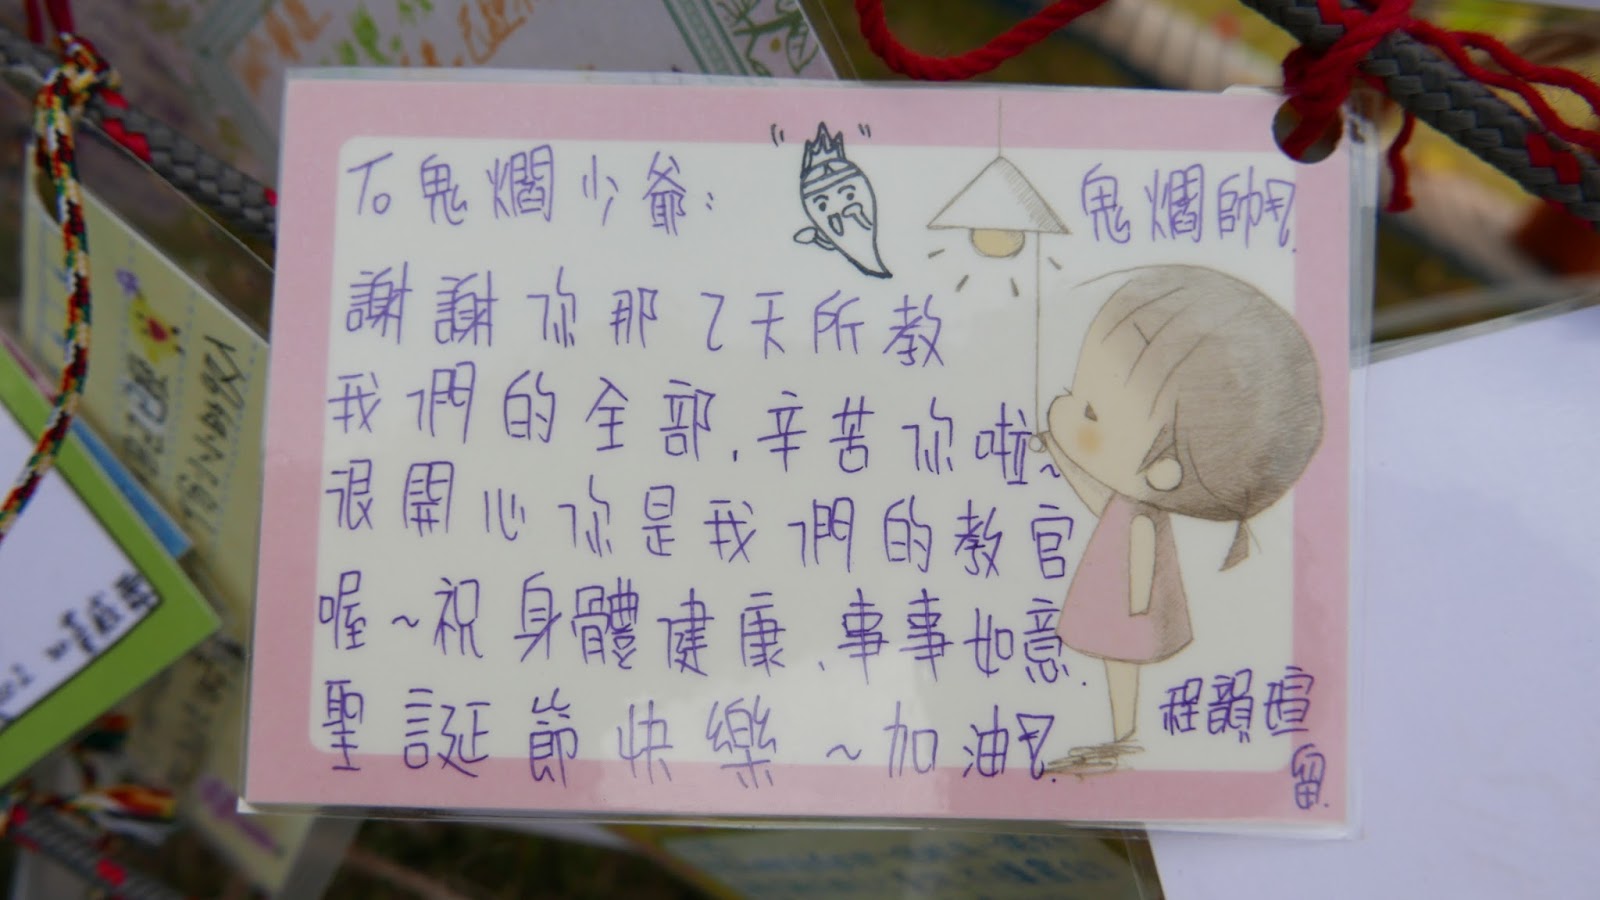 To鬼爛少爺：
鬼爛帥!!
謝謝你那2天所教
我們的全部、辛苦你啦~
很開心你是我們的教官
喔~祝身體健康、事事如意.
聖誕節快樂~加油!!
程韻瑄
留.